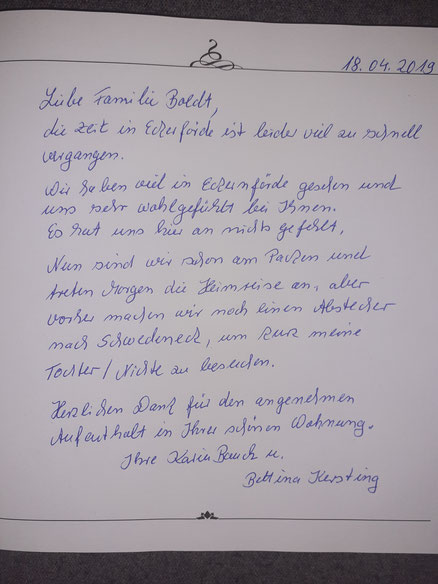 18.04.2019
Liebe Familie Boldt,
die Zeit in Eckernförde ist leider viel zu schnell
vergangen.
Wir haben viel in Eckernförde gesehen und
uns sehr wohlgefühlt bei Ihnen.
Es hat uns hier an nichts gefehlt.
Nun sind wir schon am Packen und
treten Morgen die Heimreise an, aber
vorher machen wir noch einen Abstecher
nach Schwedeneck, um kurz meine
Tochter/Nichte zu besuchen.
Herzlichen Dank für den angenehmen
Aufenthalt in Ihrer schönen Wohnung.
Ihre Karin Bauck u.
Bettina Kersting